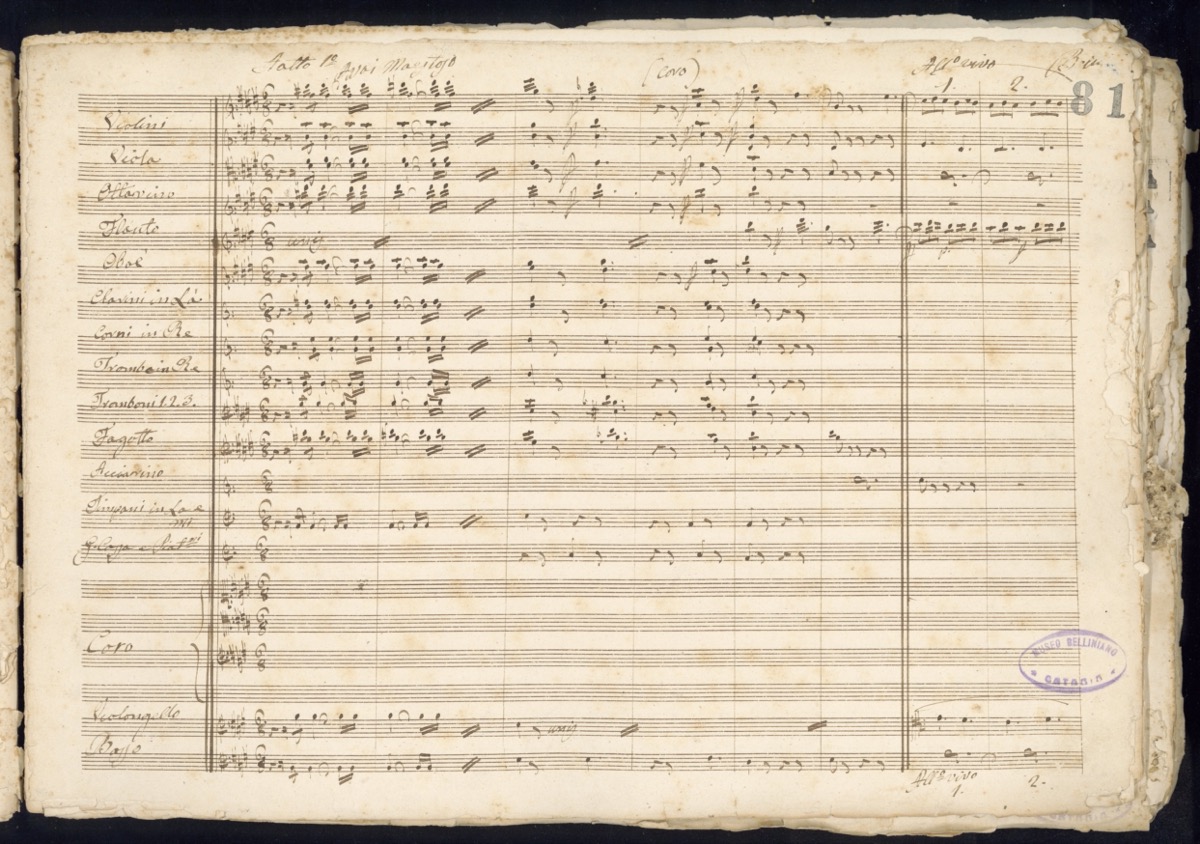 Assai Maestoso
(Coro)
All.o vivo
1. 2.
81
Violini
Viola
Ottavino
Flauto
Oboè
Clarini in Là
Corni in Re
Trombe in Re
Tromboni 1. 2. 3.
Fagotto
Acciarino
Timpani in La e
mi
G. Cassa e Piatti
unis
Coro
MUSEO BELLINIANO
CATANIA
Violongello
unis
Basso
All.o vivo
1. 2.